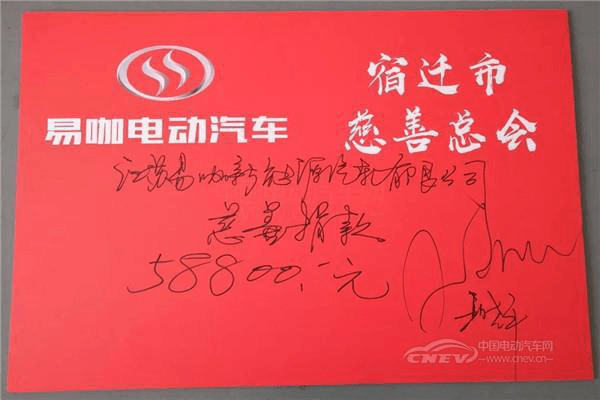 易咖电动汽车
宿迁市
慈善总会
江苏易咖新能源汽车有限公司
慈善捐款
58800.一元
中国电动汽车网
CNEV
-www.cnev.cn-